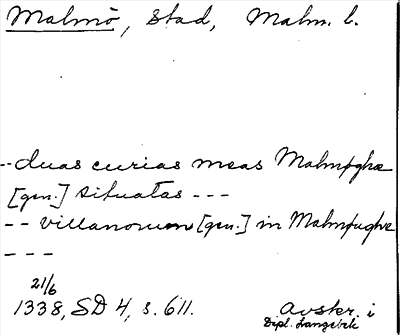 Malmö, Stad, Malm. l.
-- duas curias meas Malmøghæ
[gen.] situatas ---
-- villanorum [gen.] in Malmøughe
---
21/6
1338, SD 4, s. 611.
Avskr. i
Dipl. Langebek